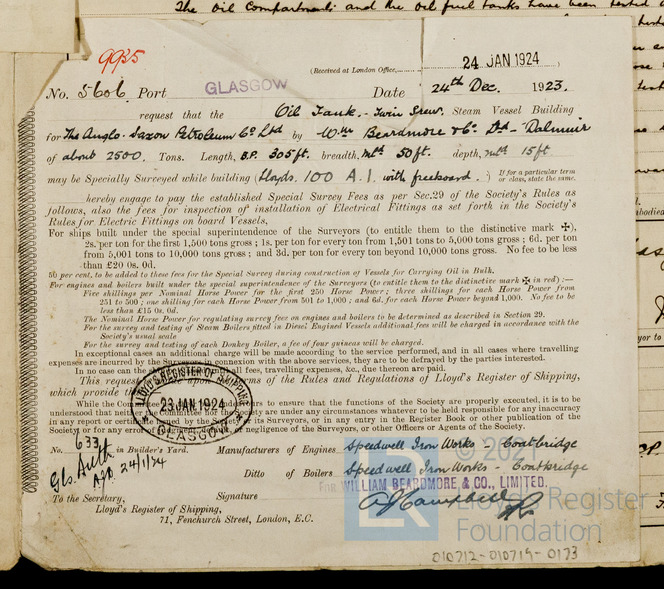 The Oil Compartments and the oil fuel tanks have been tested
9935
(Received at London Office, 24 JAN 1924)
No. 5606. Port GLASGOW Date 24th Dec. 1923.
request that the Oil Tank. - Twin Screw. Steam Vessel Building
for The Anglo-Saxon Petroleum Co Ltd by Wm Beardmore & Co. Ltd - Dalmuir
of about 2500. Tons. Length, B.P. 305 ft. breadth, mld 50 ft. depth, mld 15 ft
may be Specially Surveyed while building (Lloyds. 100 A.1. with freeboard.) If for a particular term or class, state the same.
hereby engage to pay the established Special Survey Fees as per Sec. 29 of the Society's Rules as
follows, also the fees for inspection of installation of Electrical Fittings as set forth in the Society's
Rules for Electric Fittings on board Vessels,
For ships built under the special superintendence of the Surveyors (to entitle them to the distinctive mark ✠),
2s. per ton for the first 1,500 tons gross; 1s. per ton for every ton from 1,501 tons to 5,000 tons gross; 6d. per ton
from 5,001 tons to 10,000 tons gross; and 3d. per ton for every ton beyond 10,000 tons gross. No fee to be less
than £20 0s. 0d.
50 per cent. to be added to these fees for the Special Survey during construction of Vessels for Carrying Oil in Bulk.
For engines and boilers built under the special superintendence of the Surveyors (to entitle them to the distinctive mark ✠ in red) :—
Five shillings per Nominal Horse Power for the first 250 Horse Power; three shillings for each Horse Power from
251 to 500; one shilling for each Horse Power from 501 to 1,000; and 6d. for each Horse Power beyond 1,000. No fee to be
less than £15 0s. 0d.
The Nominal Horse Power for regulating survey fee on engines and boilers to be determined as described in Section 29.
For the survey and testing of Steam Boilers fitted in Diesel Engined Vessels additional fees will be charged in accordance with the
Society's usual scale
For the survey and testing of each Donkey Boiler, a fee of four guineas will be charged.
In exceptional cases an additional charge will be made according to the service performed, and in all cases where travelling
expenses are incurred by the Surveyors in connection with the above services, they are to be defrayed by the parties interested.
In no case can the all fees, travelling expenses, &c., due thereon are paid.
This request upon terms of the Rules and Regulations of Lloyd's Register of Shipping,
which provide
LLOYD'S REGISTER OF SHIPPING
23 JAN 1924
GLASGOW
While the Com endeavours to ensure that the functions of the Society are properly executed, it is to be
understood that neither the Committee nor the Society are under any circumstances whatever to be held responsible for any inaccuracy
in any report or certificate issued by the Society or its Surveyors, or in any entry in the Register Book or other publication of the
Society, or for any error of judgment, default or negligence of the Surveyors, or other Officers or Agents of the Society.
No. 633 in Builder's Yard. Manufacturers of Engines Speedwell Iron Works - Coatbridge
Ditto of Boilers Speedwell Iron Works - Coatbridge
24/1/24
For WILLIAM BEARDMORE & CO., LIMITED.
To the Secretary, Signature A J Campbell
Lloyd's Register of Shipping,
71, Fenchurch Street, London, E.C.
LR
Lloyd's Register
Foundation
010712-010719-0173